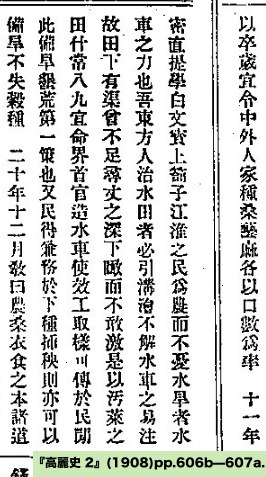 以卒歲宜令中外人家種桑藝麻各以口數爲率　十一年
密直提學白文寶上箚子江淮之民爲農而不憂水旱者水
車之力也吾東方人治水田者必引溝澮不解水車之易注
故田下有渠曾不足尋丈之深下瞰而不敢激是以汚萊之
田什常八九宜命界首官造水車使效工取樣可傳於民間
此備旱墾荒第一策也又民得兼務於下種揷秧則亦可以
備旱不失穀種　二十年十二月敎曰農桑衣食之本諸道
『高麗史 2』(1908)pp.606b—607a.